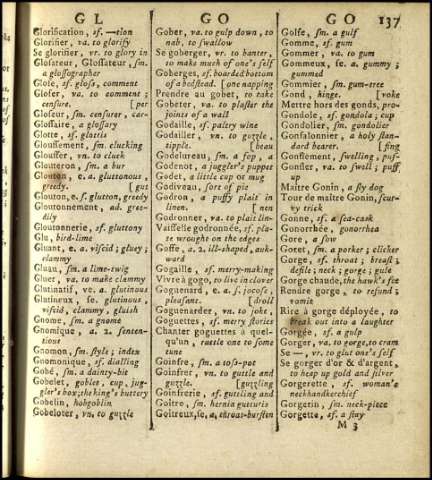 G L
G O
G O
137
Glorification, sf. —tion
Glorifier, va. to glorify
Se glorifier, vr. to glory in
Glosateur, Glossateur, sm.
a glossographer
Glose, sf. gloss, comment
Gloser, va. to comment;
censure. [per
Gloseur, sm. censurer, car-
Glossaire, a glossary
Glotte, sf. glottis
Gloussement, sm. clucking
Glousser, vn. to cluck
Glouteron, sm. a bur
Glouton, e. a. gluttonous,
greedy. [gut
Glouton, e. s. glutton, greedy
Gloutonnement, ad. gree-
dily
Gloutonnerie, sf. gluttony
Glu, bird-lime
Gluant, e. a. viscid; gluey;
clammy
Gluau, sm. a lime-twig
Gluer, va. to make clammy
Glutinatif, ve. a. glutinous
Glutineux, se. glutinous,
viscid, clammy, gluish
Gnome, sm. a gnome
Gnomique, a. 2. senten-
tious
Gnomon, sm. style; index
Gnomonique, sf. dialling
Gobé, sm. a dainty-bit
Gobelet, goblet, cup, jug-
gler's box; the king's buttery
Gobelin, hobgoblin
Gobeloter, vn. to guzzle
Gober, va. to gulp down, to
nab, to swallow
Se goberger, vr. to banter,
to make much of one's self
Goberges, sf. boarded bottom
of a bedstead. [one napping
Prendre au gobet, to take
Gobeter, va. to plaster the
joints of a wall
Godaille, sf. paltry wine
Godailler, vn. to guzzle,
tipple. [beau
Godelureau, sm. a fop, a
Godenot, a juggler's puppet
Godet, a little cup or mug
Godiveau, sort of pie
Godron, a puffy plait in
linen. [nen
Godronner, va. to plait lin-
Vaisselle godronnée, sf. pla-
te wrought on the edges
Goffe, a. 2. ill-shaped, auk-
ward
Gogaille, sf. merry-making
Vivre à gogo, to live in clover
Goguenard, e. a. s. jocose,
pleasant. [droll
Goguenarder, vn. to joke,
Goguettes, sf. merry stories
Chanter goguettes à quel-
qu'un, rattle one to some
tune
Goinfre, sm. a toss-pot
Goinfrer, vn. to guttle and
guzzle. [guzzling
Goinfrerie, sf. guttling and
Goître, sm. hernia gutturis
Goîtreux, se, a, throat-bursten
Golfe, sm. a gulf
Gomme, sf. gum
Gommer, va. to gum
Gommeux, se. a. gummy;
gummed
Gommier, sm. gum-tree
Gond, hinge. [voke
Mettre hors des gonds, pro-
Gondole, sf. gondola; cup
Gondolier, sm. gondolier
Gonfalonnier, a holy stan-
dard bearer. [fing
Gonflement, swelling, puf-
Gonfler, va. to swell; puff
up
Maître Gonin, a sly dog
Tour de maître Gonin, scur-
vy trick
Gonne, sf. a sea-cask
Gonorrhée, gonorrhea
Gore, a sow
Goret, sm. a porker; clicker
Gorge, sf. throat; breast;
defile; neck; gorge; gule
Gorge chaude, the hawk's fee
Rendre gorge, to refund;
vomit
Rire à gorge déployée, to
break out into a laughter
Gorgée, sf. a gulp
Gorger, va. to gorge, to cram
Se —, vr. to glut one's self
Se gorger d'or & d'argent,
to heap up gold and silver
Gorgerette, sf. woman's
neckhandkerchief
Gorgerin, sm. neck-piece
Gorgette, sf. a stay
M 3